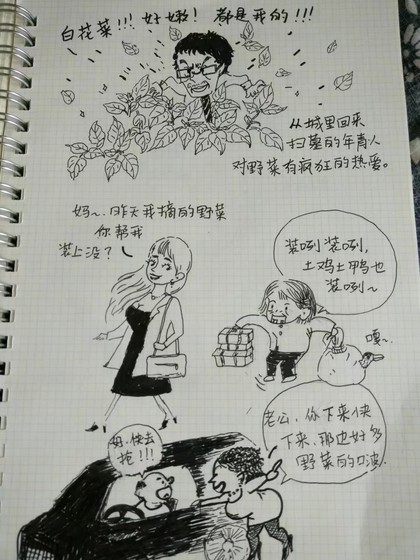 白花菜!!! 好嫩! 都是我的!!!
从城里回来
扫墓的年青人
对野菜有疯狂的热爱。
妈~,昨天我摘的野菜
你帮我
装上没?
装咧装咧,
土鸡土鸭也
装咧~
嘎~
老公,你下来快
下来,那边好多
野菜的口波
好,快去
抢!!!